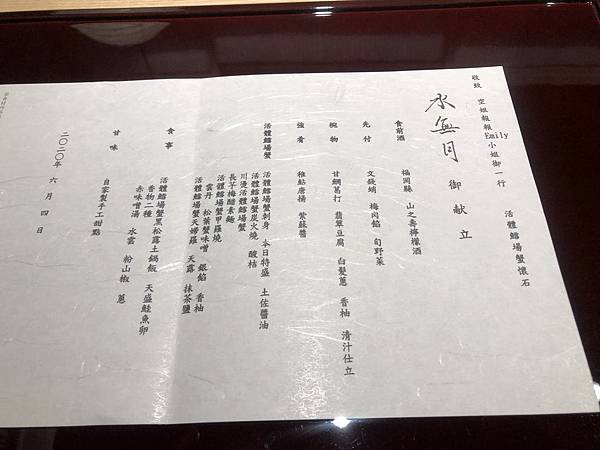 敬致 空姐報報Emily小姐御一行
活體鱈場蟹懷石
水無月 御献立
食前酒 福岡縣 山之壽檸檬酒
先付 文錢蛸 梅肉餡 旬野菜
椀物 甘鯛葛打 翡翠豆腐 白髮蔥 香柚 清汁仕立
強肴 稚鮎唐揚 紫蘇醬
活體鱈場蟹 活體鱈場蟹刺身 本日特盛 土佐醬油
活體鱈場蟹炭火燒 酸桔
川燙活體鱈場蟹
長芋梅醋素麵
活體鱈場蟹甲羅燒
雲丹 松葉蟹味噌 銀餡 香柚
活體鱈場蟹天婦羅 天露 抹茶鹽
食事 活體鱈場蟹黑松露土鍋飯 天盛鮭魚卵
香物二種
赤味噌湯 水雲 粉山椒 蔥
甘味 自家製手工甜點
二〇二〇年 六月四日